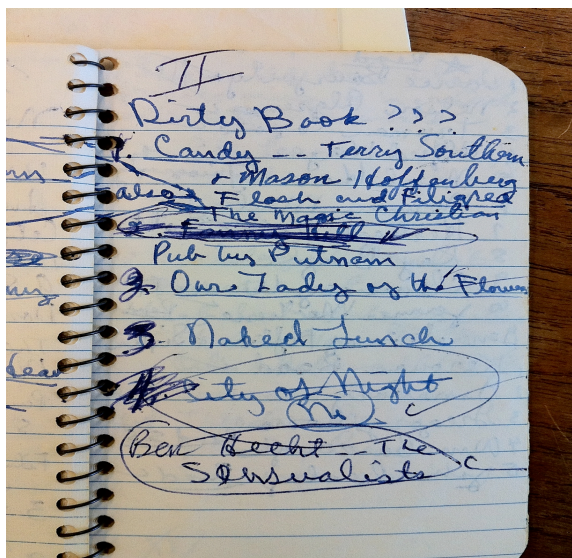 II
Dirty Book ???
1. Candy -- Terry Southern
+ Mason Hoffenberg
also Flash and Filigree
The Magic Christian
2. Fannie Hill
Pub by Putnam
2. Our Lady of the Flowers
3. Naked Lunch
City of Night
No C
Ben Hecht -- The C
Sensualists